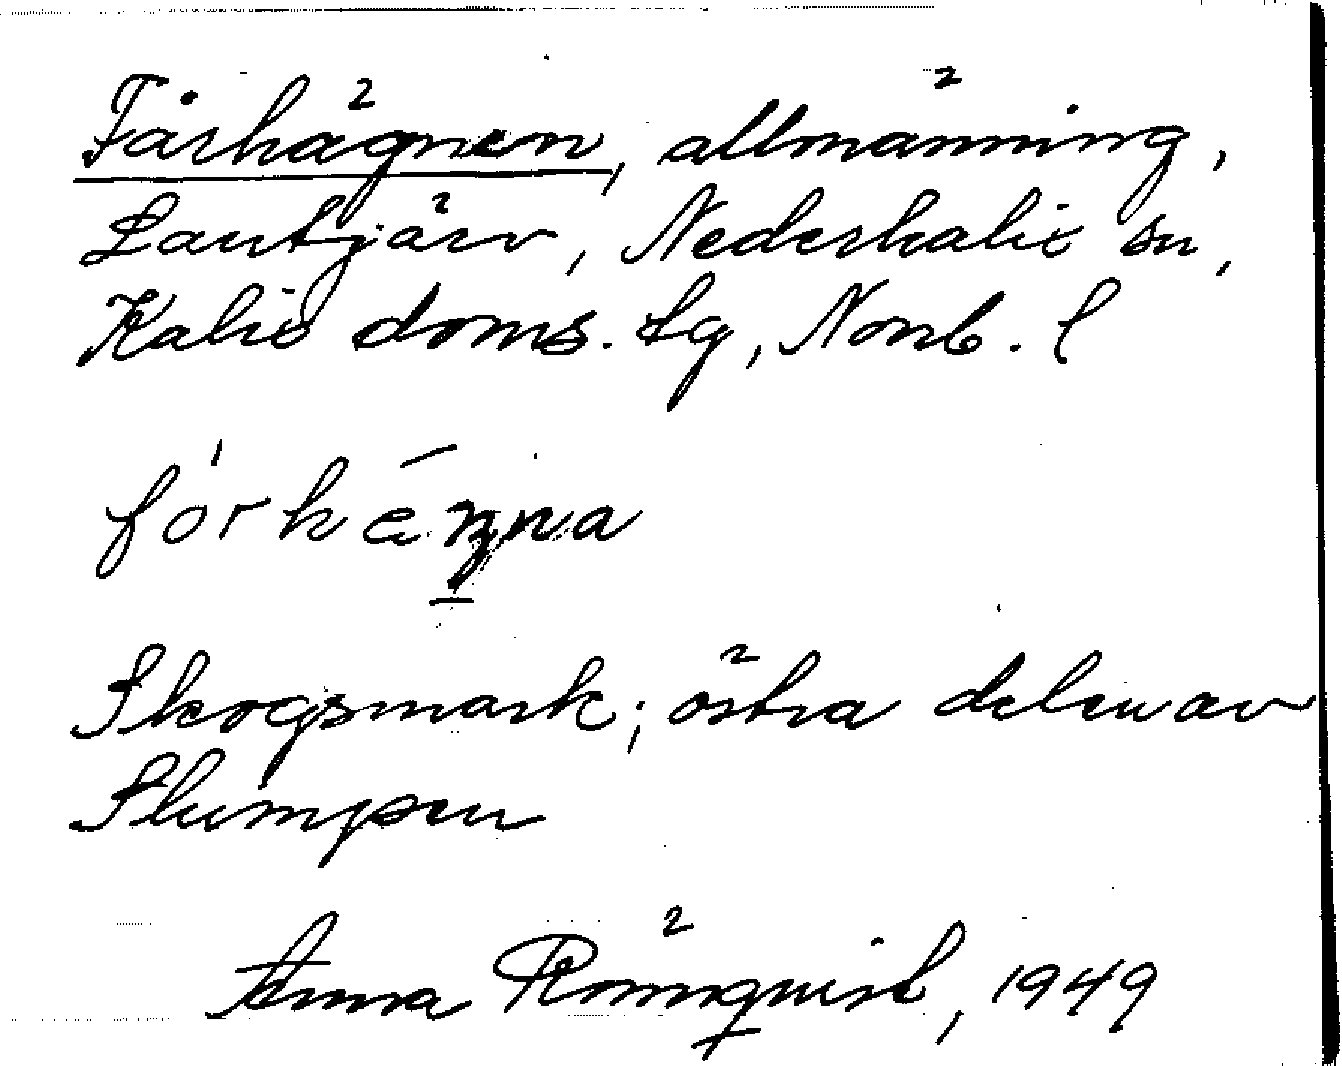 Fårhägnen, allmänning,
Lantjärv, Nederkalix sn,
Kalix doms. lg, Norrb. l
fórhēŋna
Skogsmark; östra delen av
Slumpen
Anna Rönnqvist, 1949